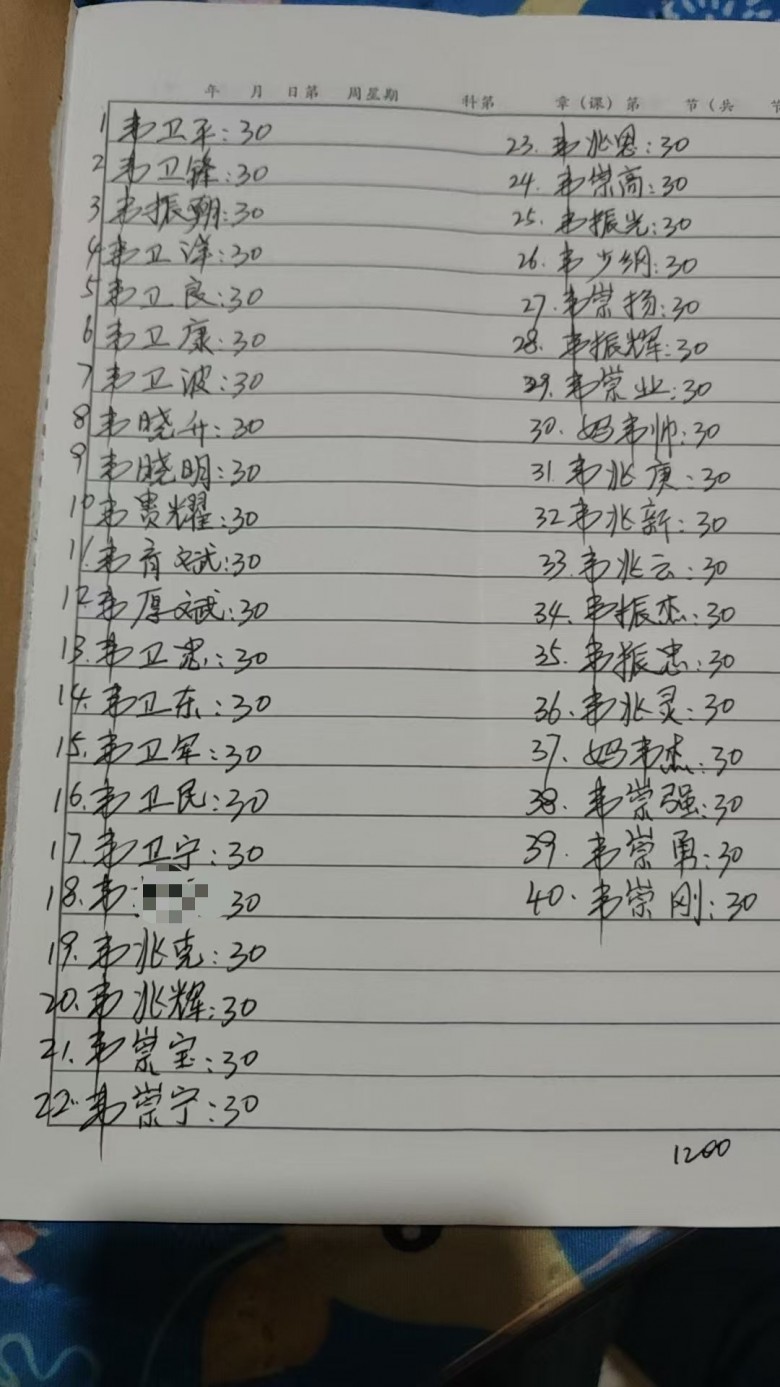 年 月 日第 周星期 科第 章(课)第 节(共 节
1 韦卫平:30
2 韦卫锋:30
3 韦振翔:30
4 韦卫泽:30
5 韦卫良:30
6 韦卫康:30
7 韦卫波:30
8 韦晓升:30
9 韦晓明:30
10 韦贵耀:30
11. 韦育斌:30
12. 韦厚斌:30
13. 韦卫忠:30
14. 韦卫东:30
15. 韦卫军:30
16. 韦卫民:30
17. 韦卫宁:30
18. 韦 30
19. 韦兆克:30
20. 韦兆辉:30
21. 韦崇宝:30
22. 韦崇宁:30
23. 韦兆恩:30
24. 韦崇高:30
25. 韦振光:30
26. 韦少纲:30
27. 韦崇扬:30
28. 韦振辉:30
29. 韦崇业:30
30. 妈韦帅:30
31. 韦兆庚:30
32 韦兆新:30
33. 韦兆云:30
34. 韦振杰:30
35. 韦振忠:30
36. 韦兆灵:30
37. 妈韦杰:30
38. 韦崇强:30
39. 韦崇勇:30
40. 韦崇刚:30
1200